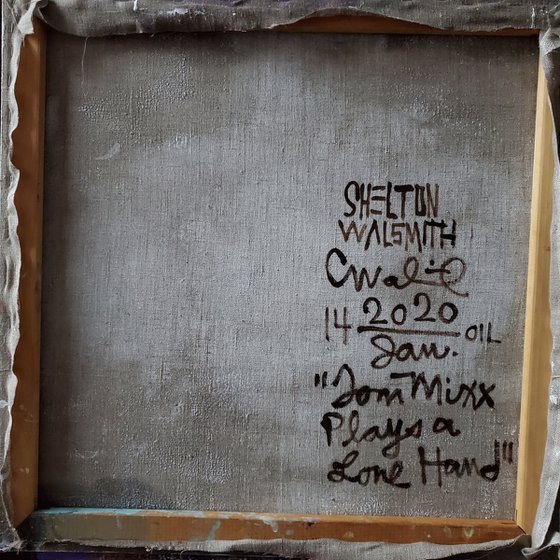 SHELTON
WALSMITH
14 2020 OIL
Jan.
"Tom Mixx
Plays a
Lone Hand"